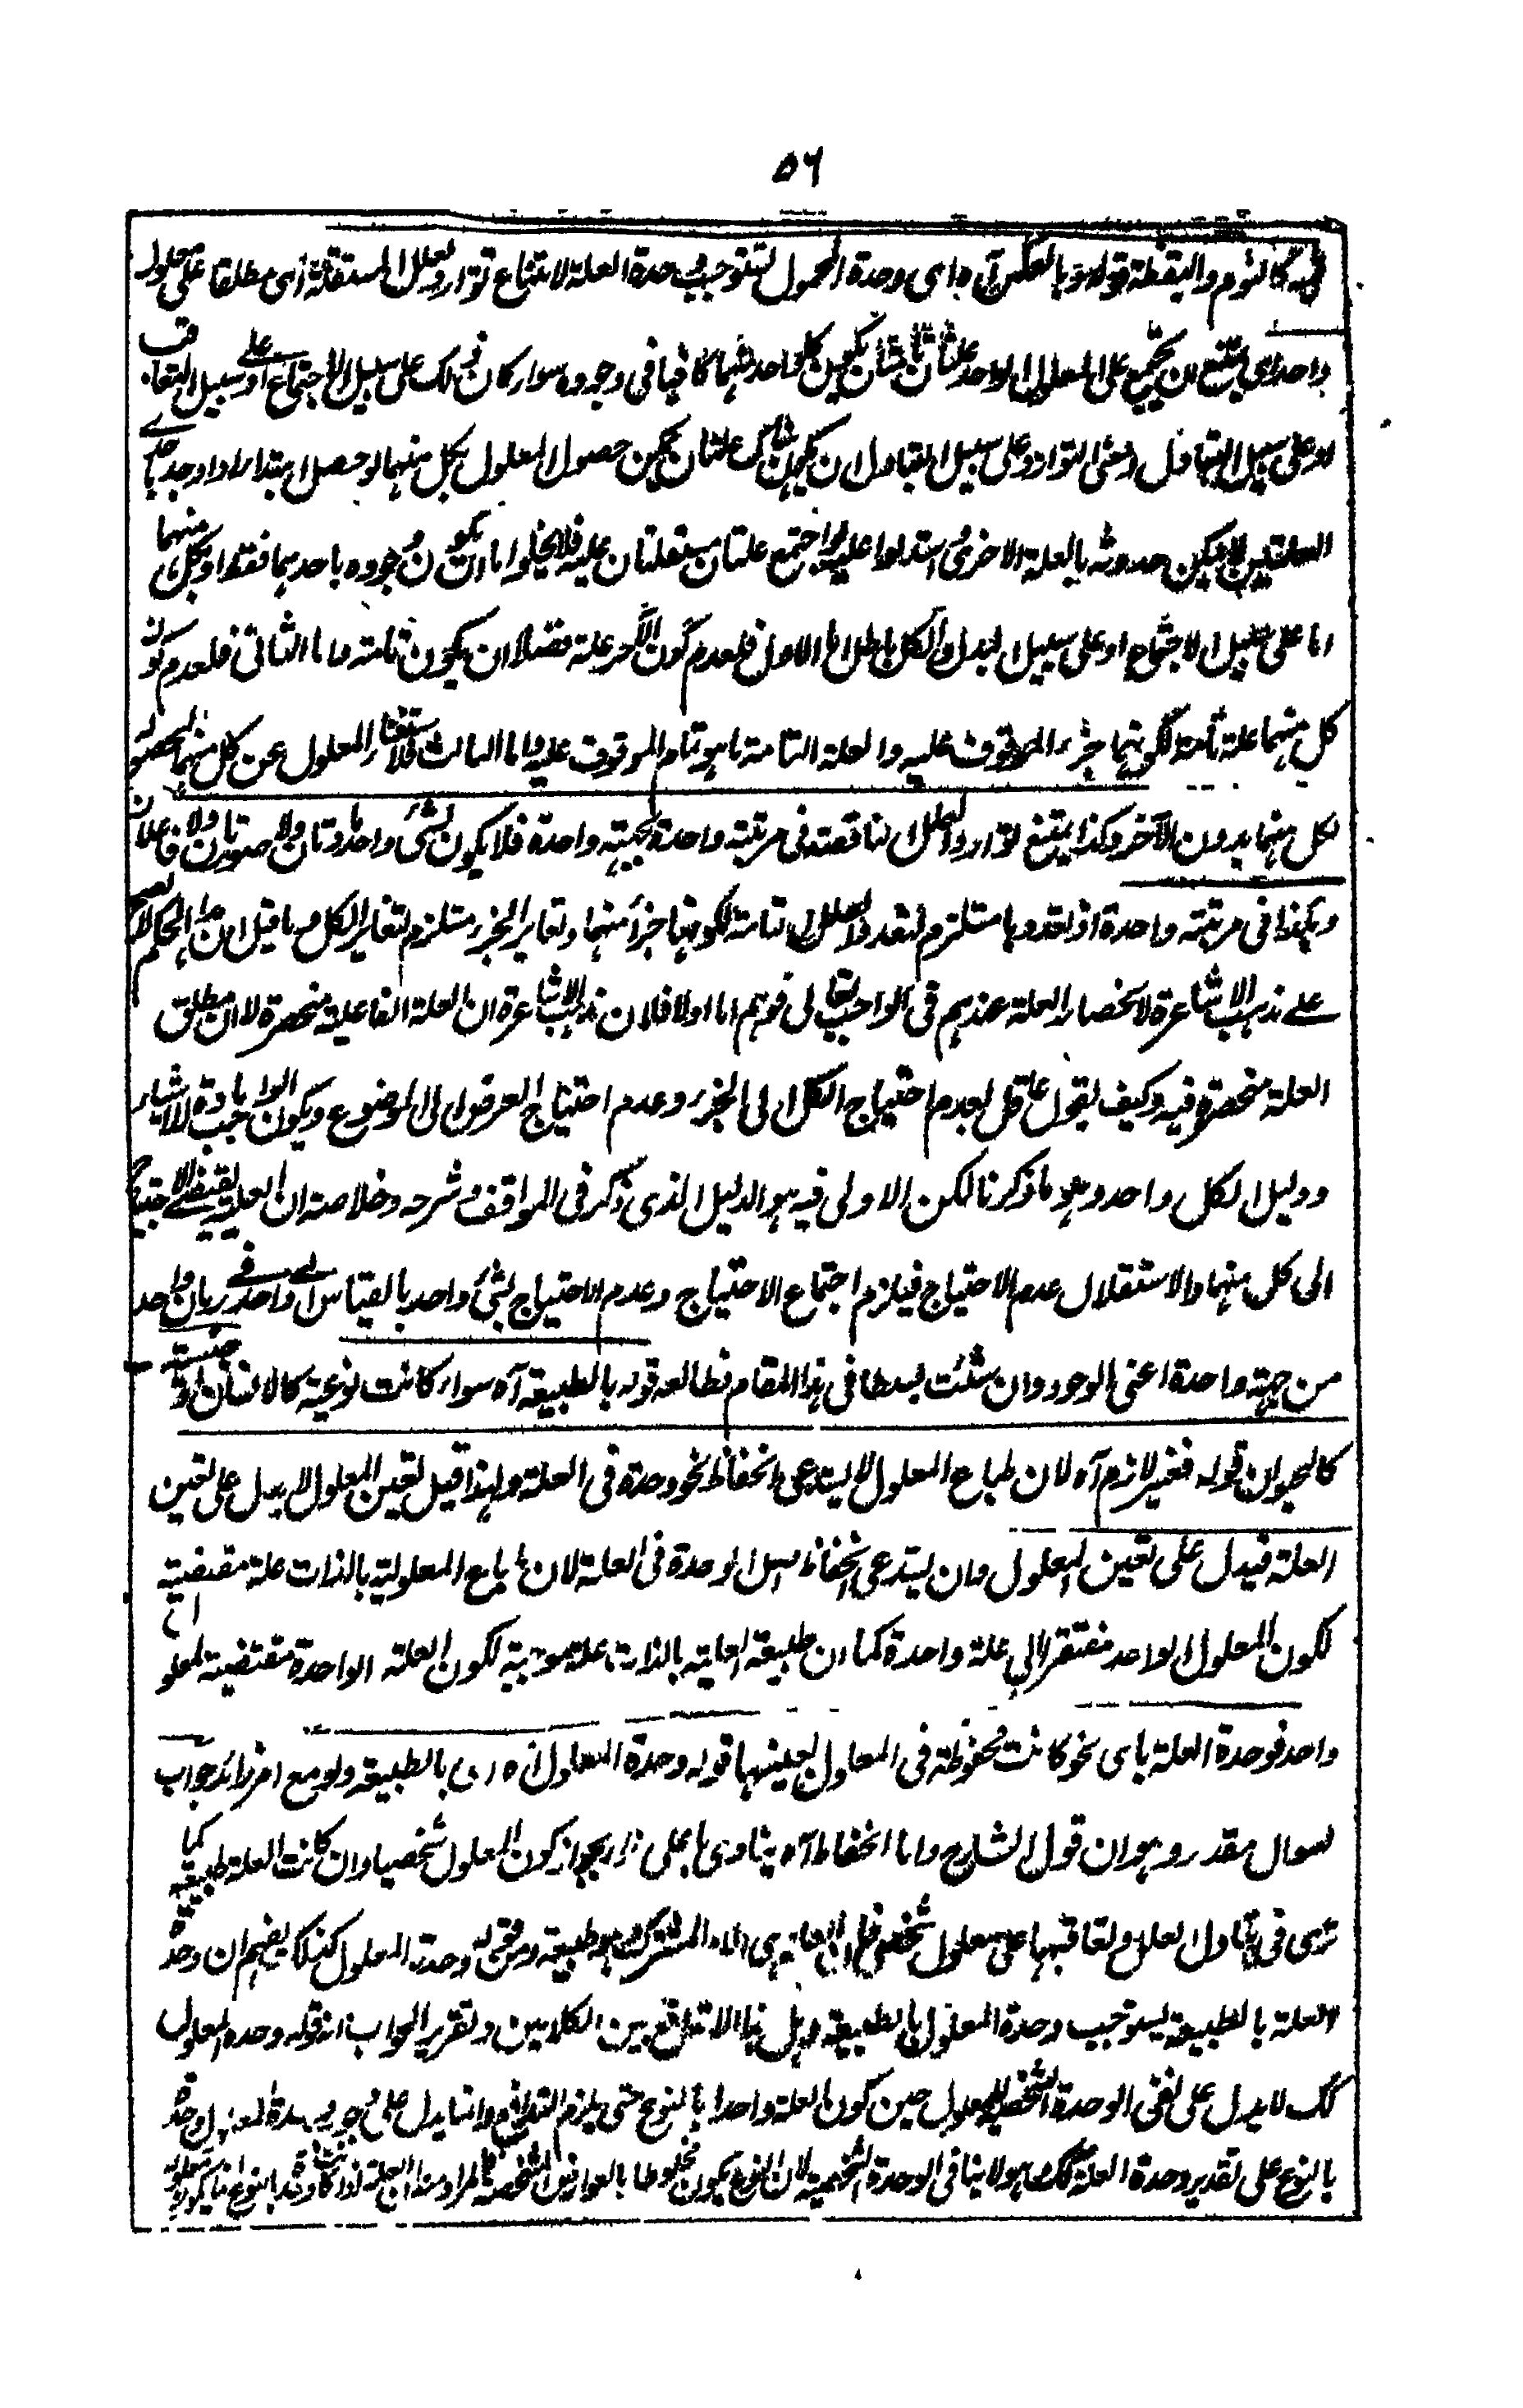 ٥٦
كالنوم واليقظة قوله وبالعكس آه اى وحدة المحمول تستوجب وحدة العلة لامتناع توارد العلل المستقلة اى مطلقا على معلول
واحد اى يمتنع ان يجتمع على المعلول الواحد علتان تامتان يكون كل واحد منهما كافيا فى وجوده سواء كان ذلك على سبيل الاجتماع او على سبيل التعاقب
او على سبيل التبادل اعنى التوارد على سبيل التبادل ان يكون هناك علتان يمكن حصول المعلول بكل منهما لو حصل ابتداء اذا وجد باحدى
العلتين لا يمكن حدوثه بالعلة الاخرى استدلوا عليه لو اجتمع علتان مستقلتان عليه فلا يخلو اما ان يكون وجوده باحدهما فقط او بكل منهما
اما على سبيل الاجتماع او على سبيل البدل والكل باطل اما الاول فلعدم كون الآخر علة فضلا ان يكون تامته واما الثانى فلعدم كون
كل منهما علة تامة لكونهما جزء الموقوف عليه والعلة التامة ما هو تمام الموقوف عليه واما الثالث فلاستغناء المعلول عن كل منهما لحصوله
بكل منهما بدون الآخر وكذا يمتنع توارد العلل الناقصة فى مرتبة واحدة بجهة واحدة فلا يكون لشئ واحد مادتان ولا صورتان ولا فاعلان
وهكذا فى مرتبة واحدة اذ تعددها مستلزم لتعدد العلل التامة لكونها جزأ منها وتغاير الجزء مستلزم لتغاير الكل وما قيل ان هذا الحكم لا يصح
على مذهب الاشاعرة لانحصار العلة عندهم فى الواجب تعالى فوهم اما اولا فلان مذهب الاشاعرة ان العلة الفاعلية منحصرة لا ان مطلق
العلة منحصرة فيه وكيف يقول عاقل بعدم احتياج الكل الى الجزء وعدم احتياج العرض الى الموضوع ويكون الواجب مادة للاشياء
ودليل الكل واحد وهو ما ذكرنا لكن الاولى فيه هو الدليل الذى ذكر فى المواقف وشرحه وخلاصته ان العلية يقتضى الاحتياج
الى كل منهما والاستقلال عدم الاحتياج فيلزم اجتماع الاحتياج وعدم الاحتياج لشئ واحد بالقياس الى واحد فى زمان واحد
من جهة واحدة اعنى الوجود وان شئت بسطا فى هذا المقام فطالعه قوله بالطبيعة آه سواء كانت نوعية كالانسان او جنسية
كالحيوان قوله فغير لازم آه لان طباع المعلول لا يستدعى انحفاظ نحو وحدة فى العلة ولهذا قيل تعين المعلول لا يدل على تعين
العلة فيدل على تعين المعلول وان يستدعى انحفاظ اصل الوحدة فى العلة لان طباع المعلولية بالذات علة مقتضية
لكون المعلول الواحد مفتقرا الى علة واحدة كما ان طبيعة العلية بالذات علة موجبة لكون العلة الواحدة مقتضية لمعلول
واحد فوحدة العلة باى نحو كانت محفوظة فى المعلول بعينها قوله وحدة المعلول آه اى بالطبيعة ولو مع امر زائد جواب
سوال مقدر وهو ان قول الشارح واما انحفاظ آه ينادى باعلى نداء بجواز كون المعلول شخصيا وان كانت العلة طبيعة كما
ترى فى تبادل العلل وتعاقبها على معلول شخصى فان العلة هى الامر المشترك وهو طبيعة ومن قوله وحدة المعلول كذلك يفهم ان وحدة
العلة بالطبيعة يستوجب وحدة المعلول بالطبيعة وهل هذا الا تدافع بين الكلامين وتقرير الجواب ان قوله وحدة المعلول
كك لا يدل على نفى الوحدة الشخصية للمعلول حين كون العلة واحدا بالنوع حتى يلزم التدافع وانما يدل على وجوب وحدة المعلول وحدة
بالنوع على تقدير وحدة العلة كك وهو لا ينافى الوحدة الشخصية لان النوع يكون مخلوطا بالعوارض الشخصية